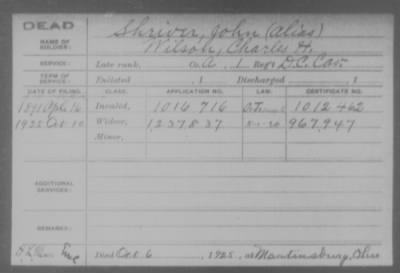 DEAD
NAME OF SOLDIER: Shriver, John (alias)
Wilson, Charles H.
SERVICE: Late rank, Co. A, 1 Reg't D.C. Cav.
TERM OF SERVICE: Enlisted , 1 Discharged , 1
DATE OF FILING. CLASS. APPLICATION NO. LAW. CERTIFICATE NO.
1891 Apl. 16 Invalid, 1016 716 1012 462
1925 Oct 10 Widow, 1237837 967,947
Minor,
ADDITIONAL SERVICES:
REMARKS:
Died Oct 6, 1925, at Martinsburg, Ohio